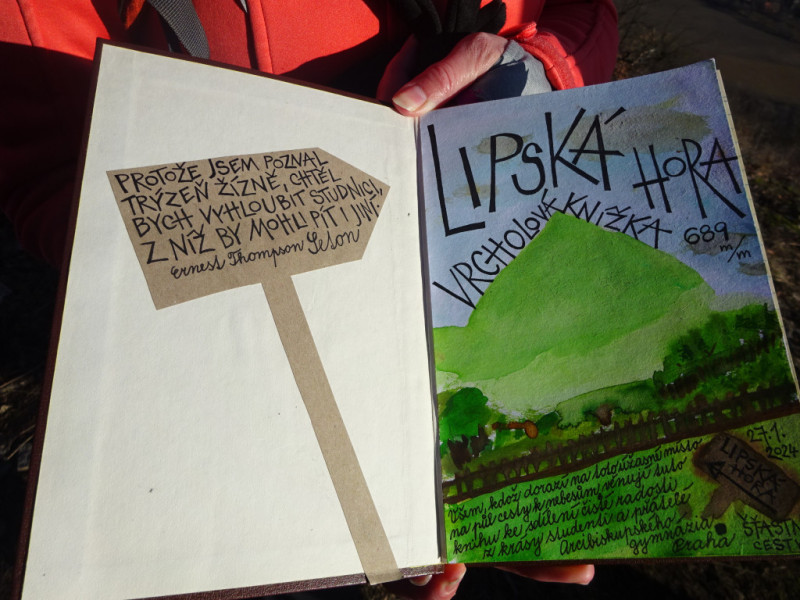 PROTOŽE JSEM POZNAL
TRÝZEŇ ŽÍZNĚ, CHTĚL
BYCH VYHLOUBIT STUDNICI,
Z NÍŽ BY MOHLI PÍT I JINÍ
Ernest Thompson Seton
LIPSKÁ HORA
VRCHOLOVÁ KNIŽKA
689
m/m
27.1.
2024
LIPSKÁ
HORA
Všem, kdož dorazí na toto úžasné místo
na půl cesty k nebesům, věnují tuto
knihu ke sdílení čisté radosti
z krásy studenti a přátelé
Arcibiskupského
gymnázia
Praha
ŠŤASTN
CESTU